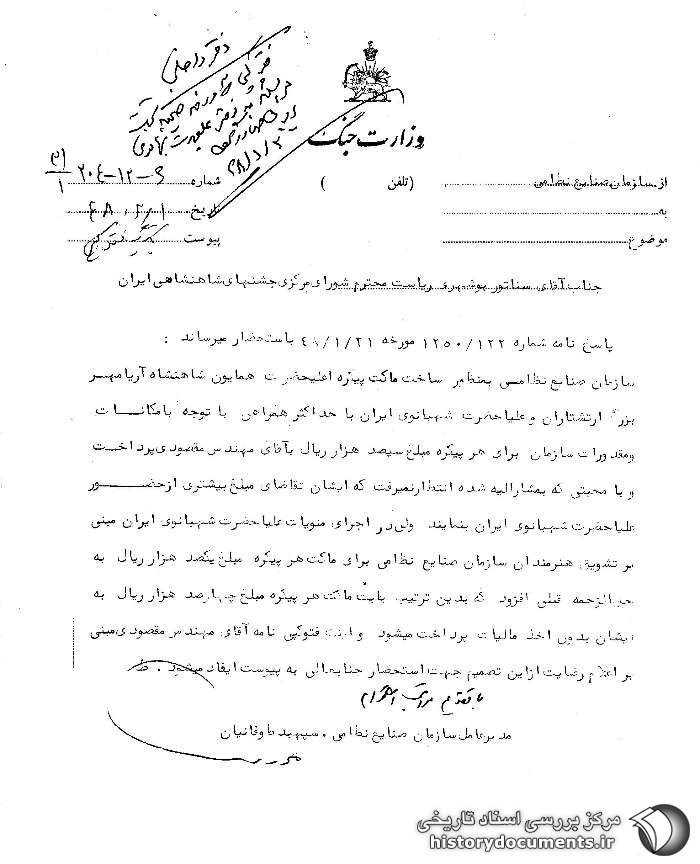 دفتر داخلی
وزارت جنگ
از سازمان صنایع نظامی (تلفن )
شماره ۲۰۴-۱۲-۶
به
تاریخ
موضوع
پیوست
جناب آقای سناتور بوشهری ریاست محترم شورای مرکزی جشنهای شاهنشاهی ایران
پاسخ نامه شماره ۱۲۵۰/۱۲۲ مورخه ۴۸/۱/۲۱ باستحضار میرساند :
سازمان صنایع نظامی بمنظور ساخت ماکت پیکره اعلیحضرت همایون شاهنشاه آریامهر
بزرگ ارتشتاران و علیاحضرت شهبانوی ایران با حداکثر همراهی با توجه بامکانات
ومقدورات سازمان برای هر پیکره مبلغ سیصد هزار ریال بآقای مهندس مقصودی پرداخت
و با محبتی که بمشارالیه شده انتظار نمیرفت که ایشان تقاضای مبلغ بیشتری از حضور
علیاحضرت شهبانوی ایران بنمایند ولی در اجرای منویات علیاحضرت شهبانوی ایران مبنی
بر تشویق هنرمندان سازمان صنایع نظامی برای ماکت هر پیکره مبلغ یکصد هزار ریال به
حق الزحمه قبلی افزود که بدین ترتیب بابت ماکت هر پیکره مبلغ چهارصد هزار ریال به
ایشان بدون اخذ مالیات پرداخت میشود و اینک فتوکپی نامه آقای مهندس مقصودی مبنی
بر اعلام رضایت از این تصمیم جهت استحضار جنابعالی به پیوست ایفاد میشود . ط
با تقدیم مراتب احترام
مدیر عامل سازمان صنایع نظامی . سپهبد طوفانیان
مرکز بررسی اسناد تاریخی
historydocuments.ir